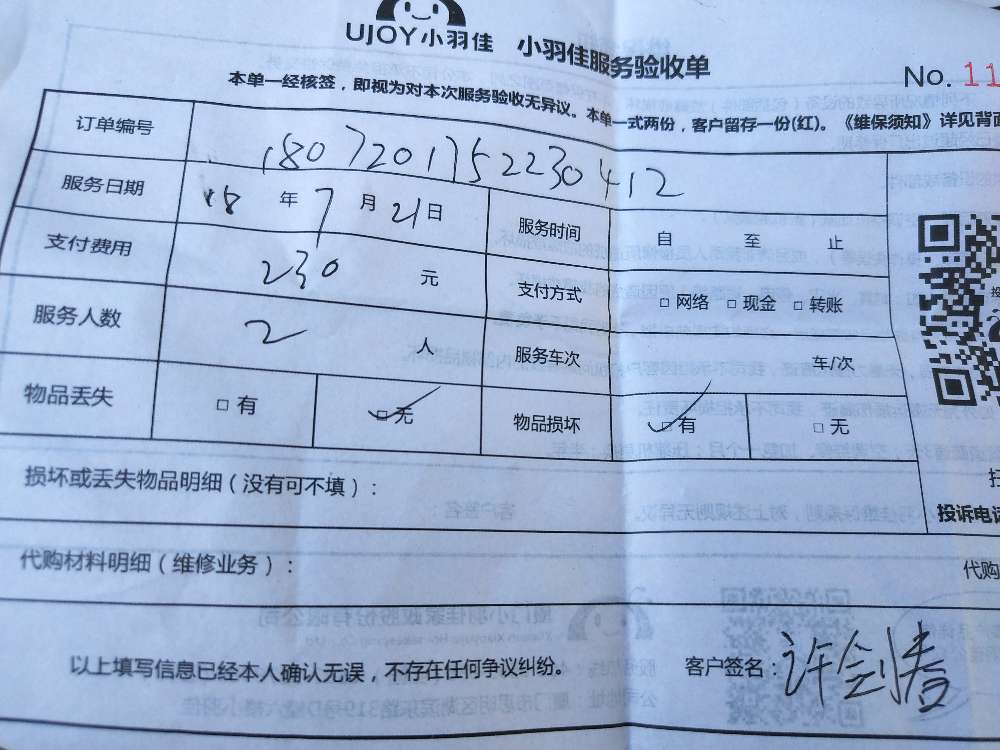 UJOY小羽佳 小羽佳服务验收单
No. 11
本单一经核签，即视为对本次服务验收无异议。本单一式两份，客户留存一份(红)。《维保须知》详见背面
订单编号 180720175223​0412
服务日期 18 年 7 月 21 日 服务时间 自 至 止
支付费用 230 元 支付方式 □ 网络 □ 现金 □ 转账
服务人数 2 人 服务车次 车/次
物品丢失 □ 有 ☑ 无 物品损坏 ☑ 有 □ 无
损坏或丢失物品明细（没有可不填）：
投诉电话
代购材料明细（维修业务）：
代购
以上填写信息已经本人确认无误，不存在任何争议纠纷。 客户签名：